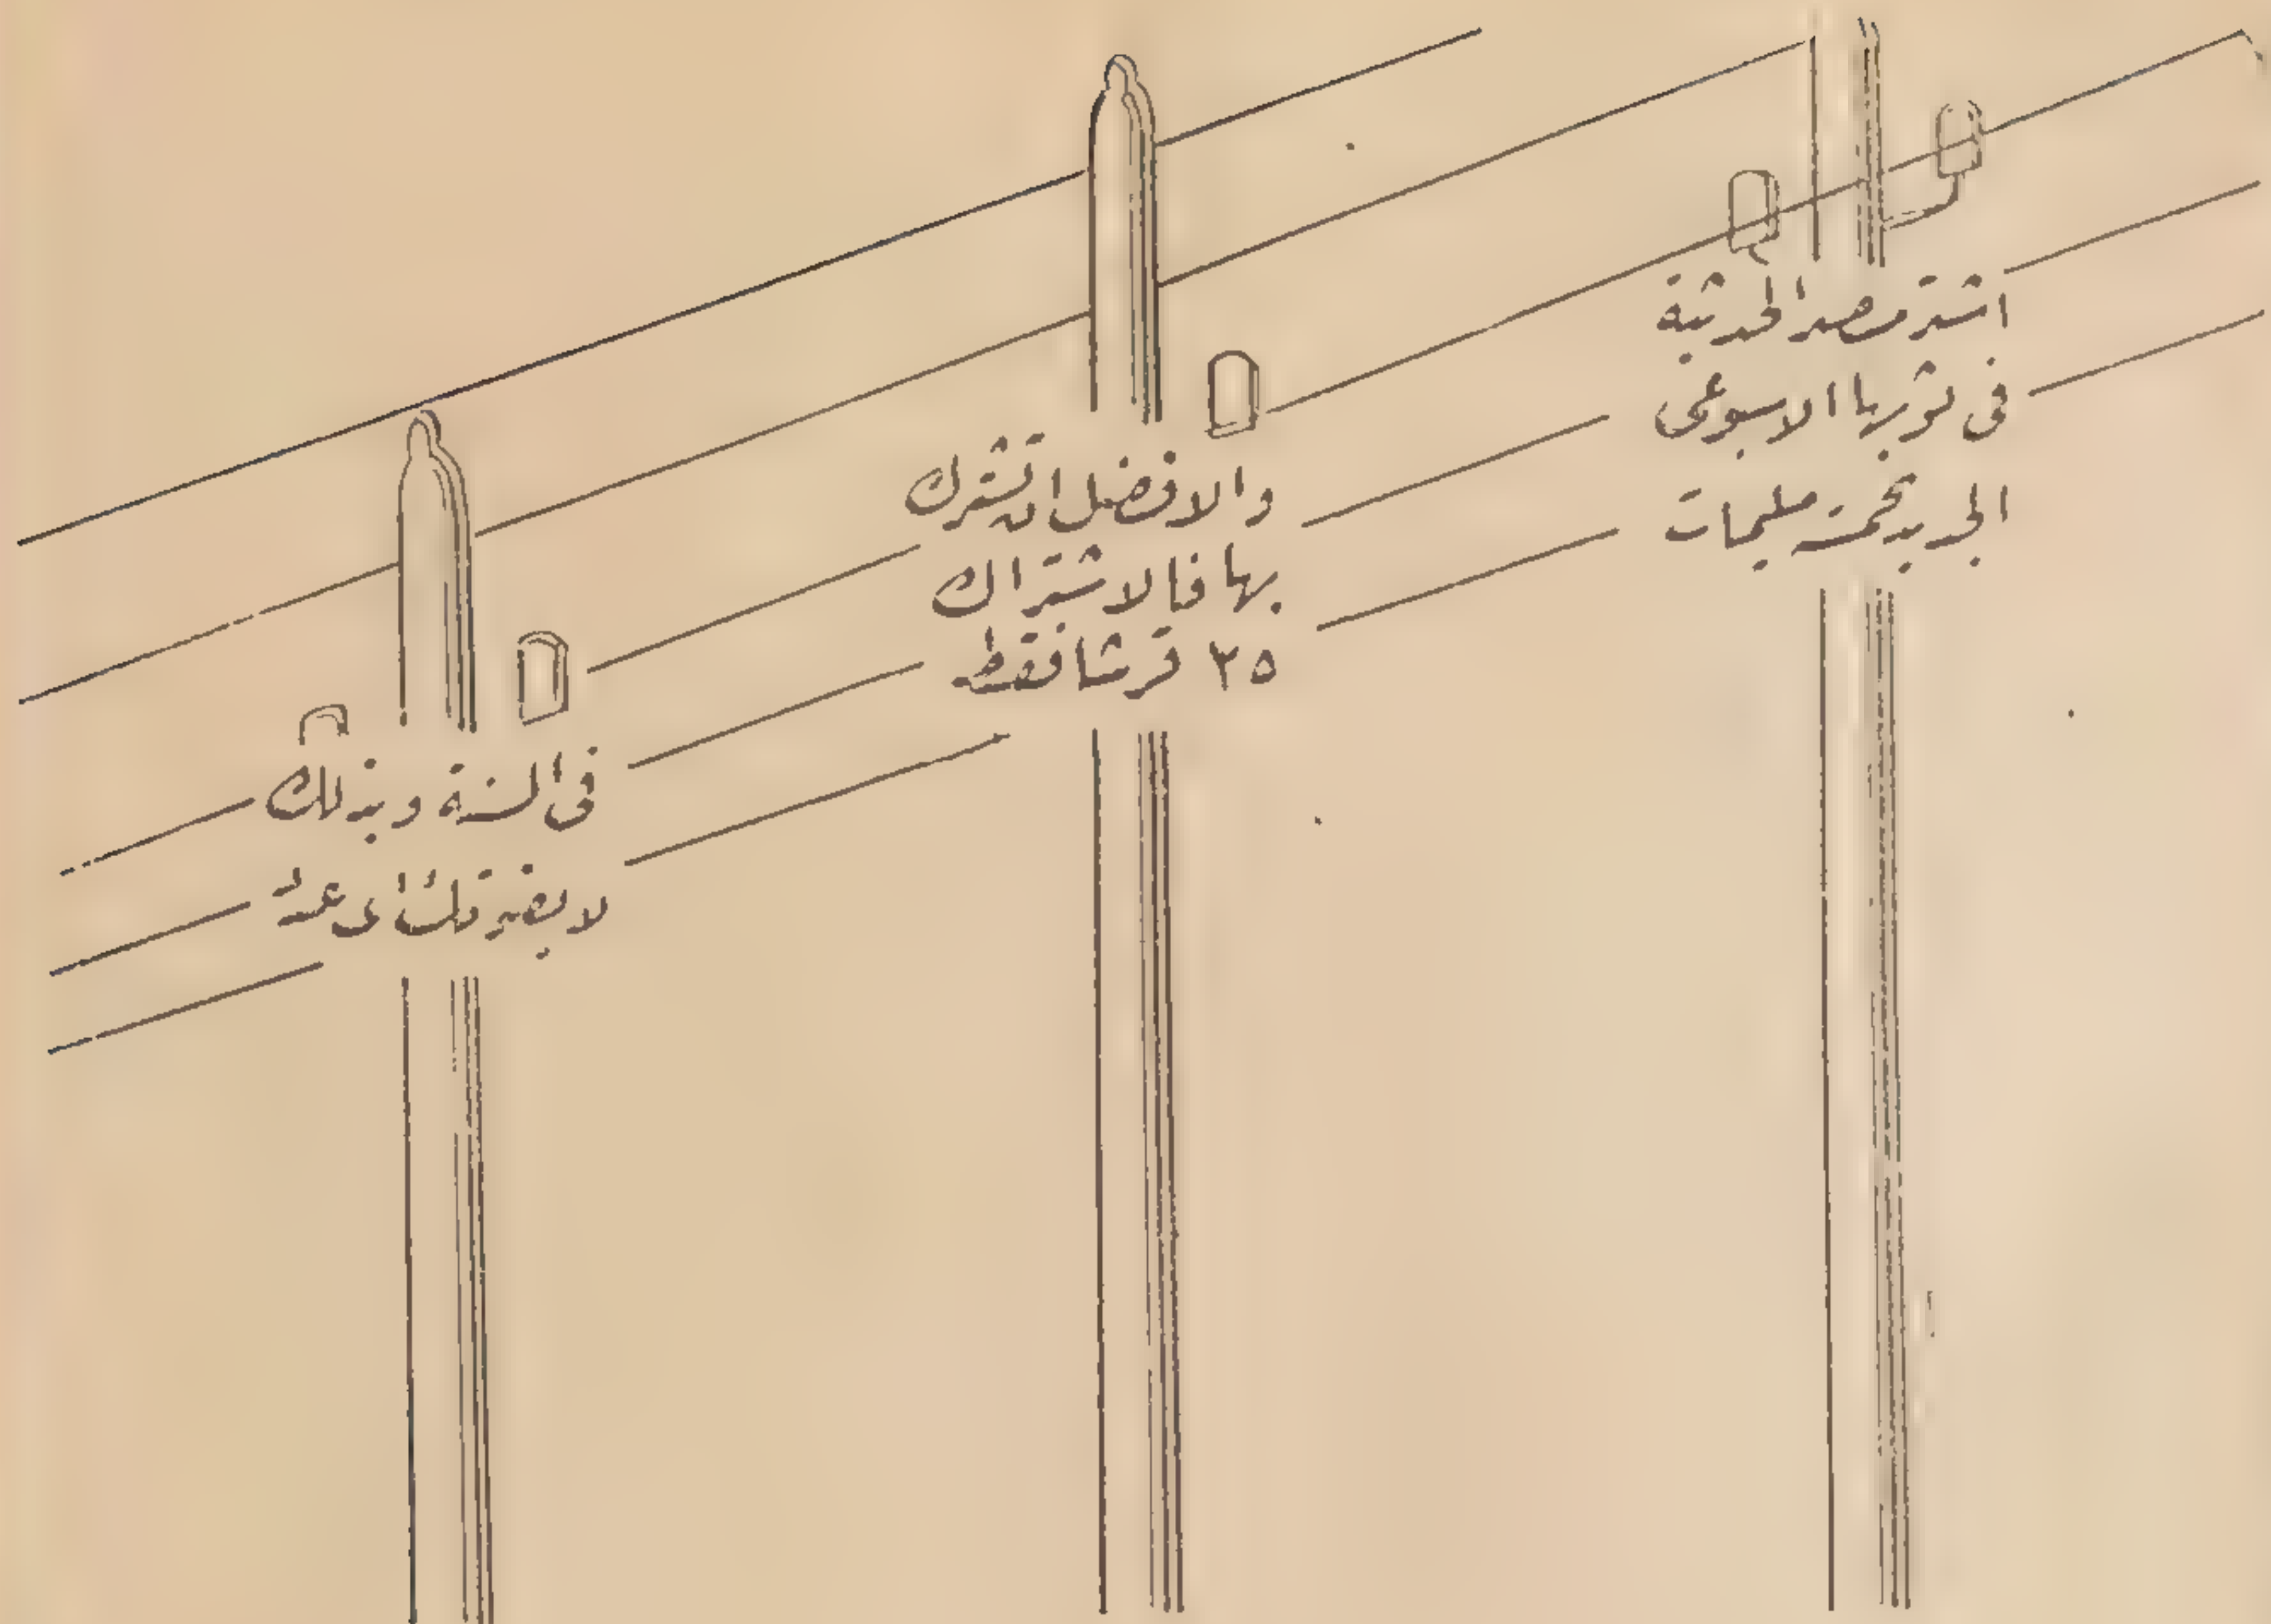 اشتر مصر الحديثة
فى ثوبها الاسبوعى
الجديد بخمسة مليمات
والافضل ان تشترك
بها فالاشتراك
٣٥ قرشا فقط
فى السنة وبذلك
لا يضيع منك أى عدد